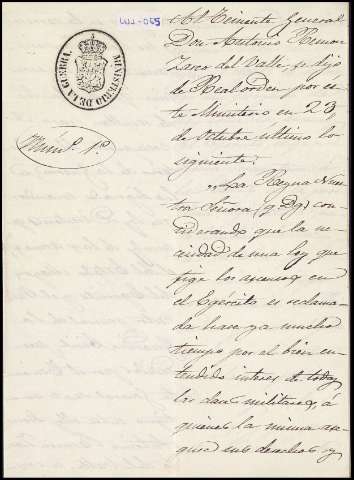 Al Teniente General
Don Antonio Remon
Zarco del Valle se dijo
de Real orden por es
te Ministerio en 23
de Octubre último lo
siguiente:
MINISTERIO DE LA GUERRA.
Núm.º 1.º
"La Reyna Nues
tra Señora (q. D. g.) con
siderando que la ne
cesidad de una ley que
fige los ascensos en
el Egército es reclama
da hace ya mucho
tiempo por el bien en
tendido interes de todas
las clases militares, á
quienes la misma ase
gure sus derechos y